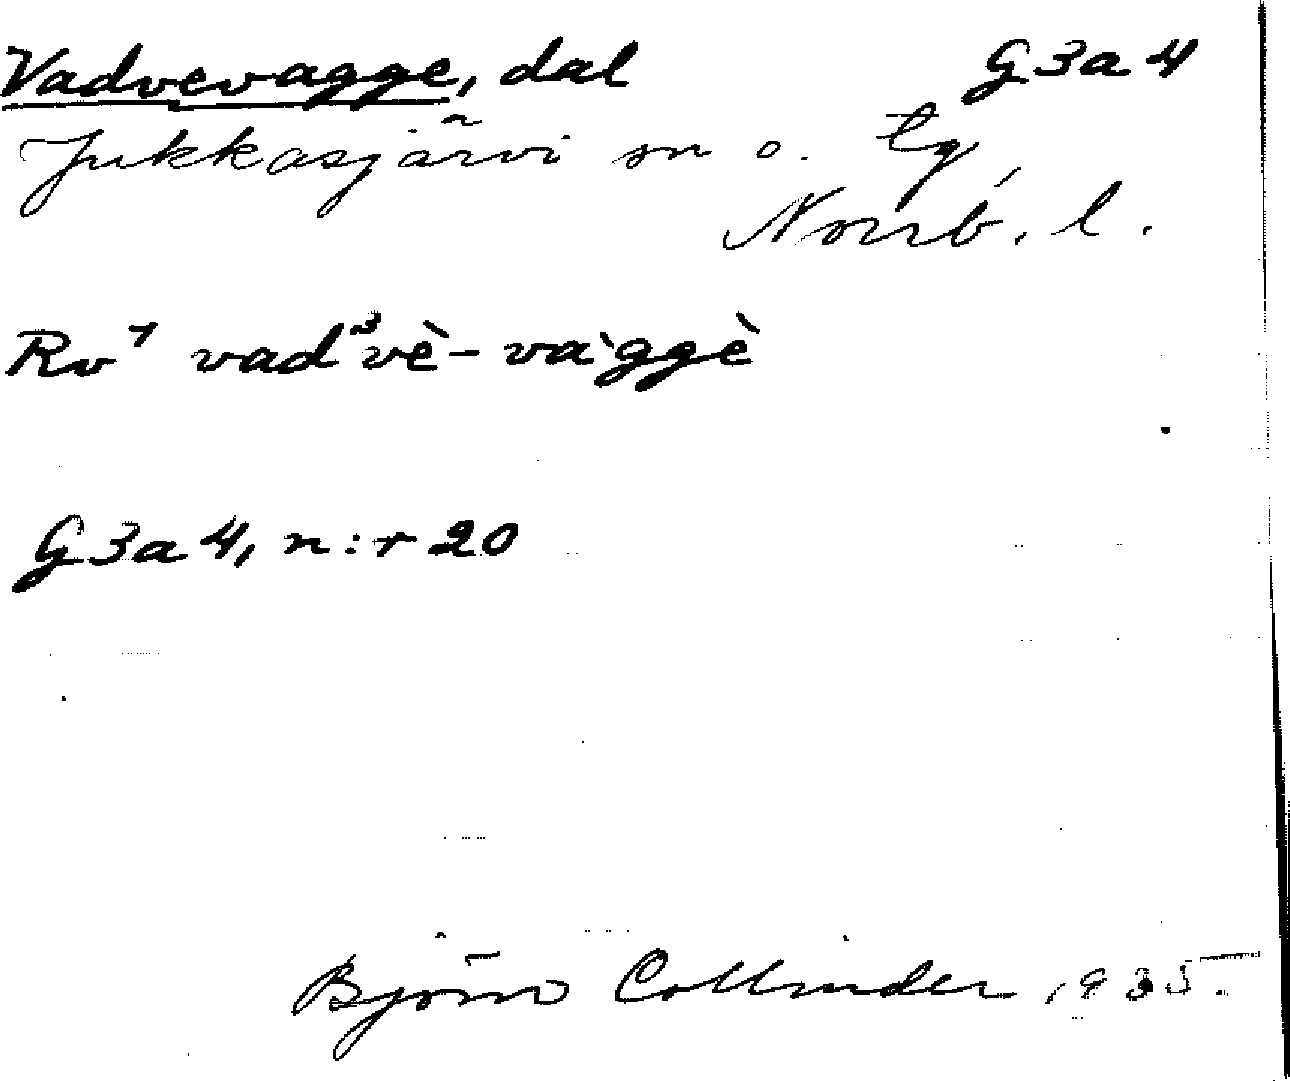 Vadvevagge, dal G3a4
Jukkasjärvi sn o. tg,
Norrb. l.
Rv¹ vad³vè-va`ggè
G3a4, n:r 20
Björn Collinder 1935.